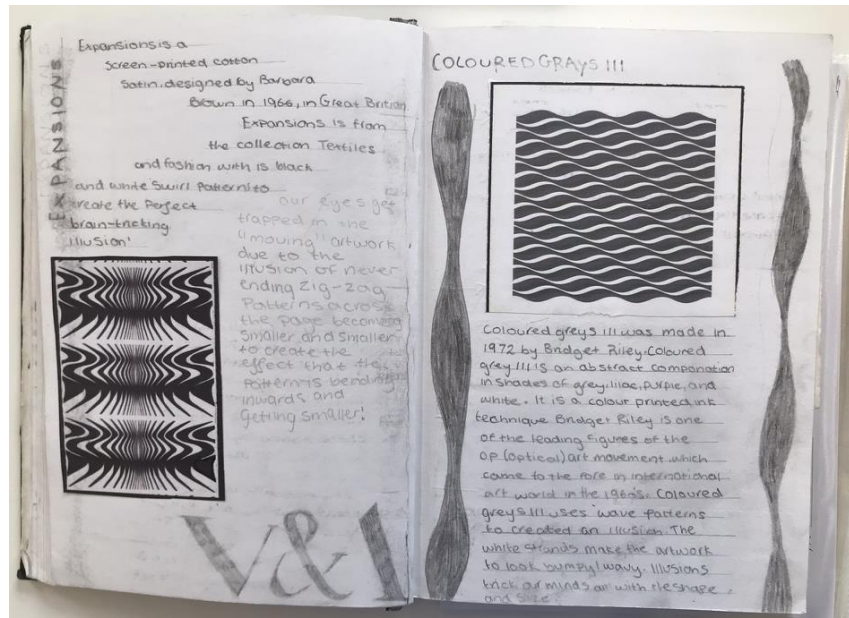 EXPANSIONS
Expansions is a
screen-printed cotton
Satin. designed by Barbara
Brown in 1966, in Great Britian
Expansions is from
the collection Textiles
and fashion with is black
and white swirl Pattern to
create the Perfect
brain-tricking
illusion'
our eyes get
trapped in the
"moving" artwork
due to the
illusion of never
ending zig-zag
Patterns across
the page becoming
smaller and smaller
to create the
effect that the
Pattern is bending
inwards and
getting smaller!
V&A
COLOURED GRAYS III
Coloured greys III was made in
1972 by Bridget Riley. Coloured
grey III is an abstract componation
in shades of grey, lilac, purple, and
white. It is a colour printed, ink
technique Bridget Riley is one
of the leading figures of the
op (optical) art movement. which
came to the fore in international
art world in the 1960s. Coloured
greys III uses wave patterns
to created an illusion. The
white strands make the artwork
to look bumpy/wavy. Illusions
trick our minds with the shape
and size.